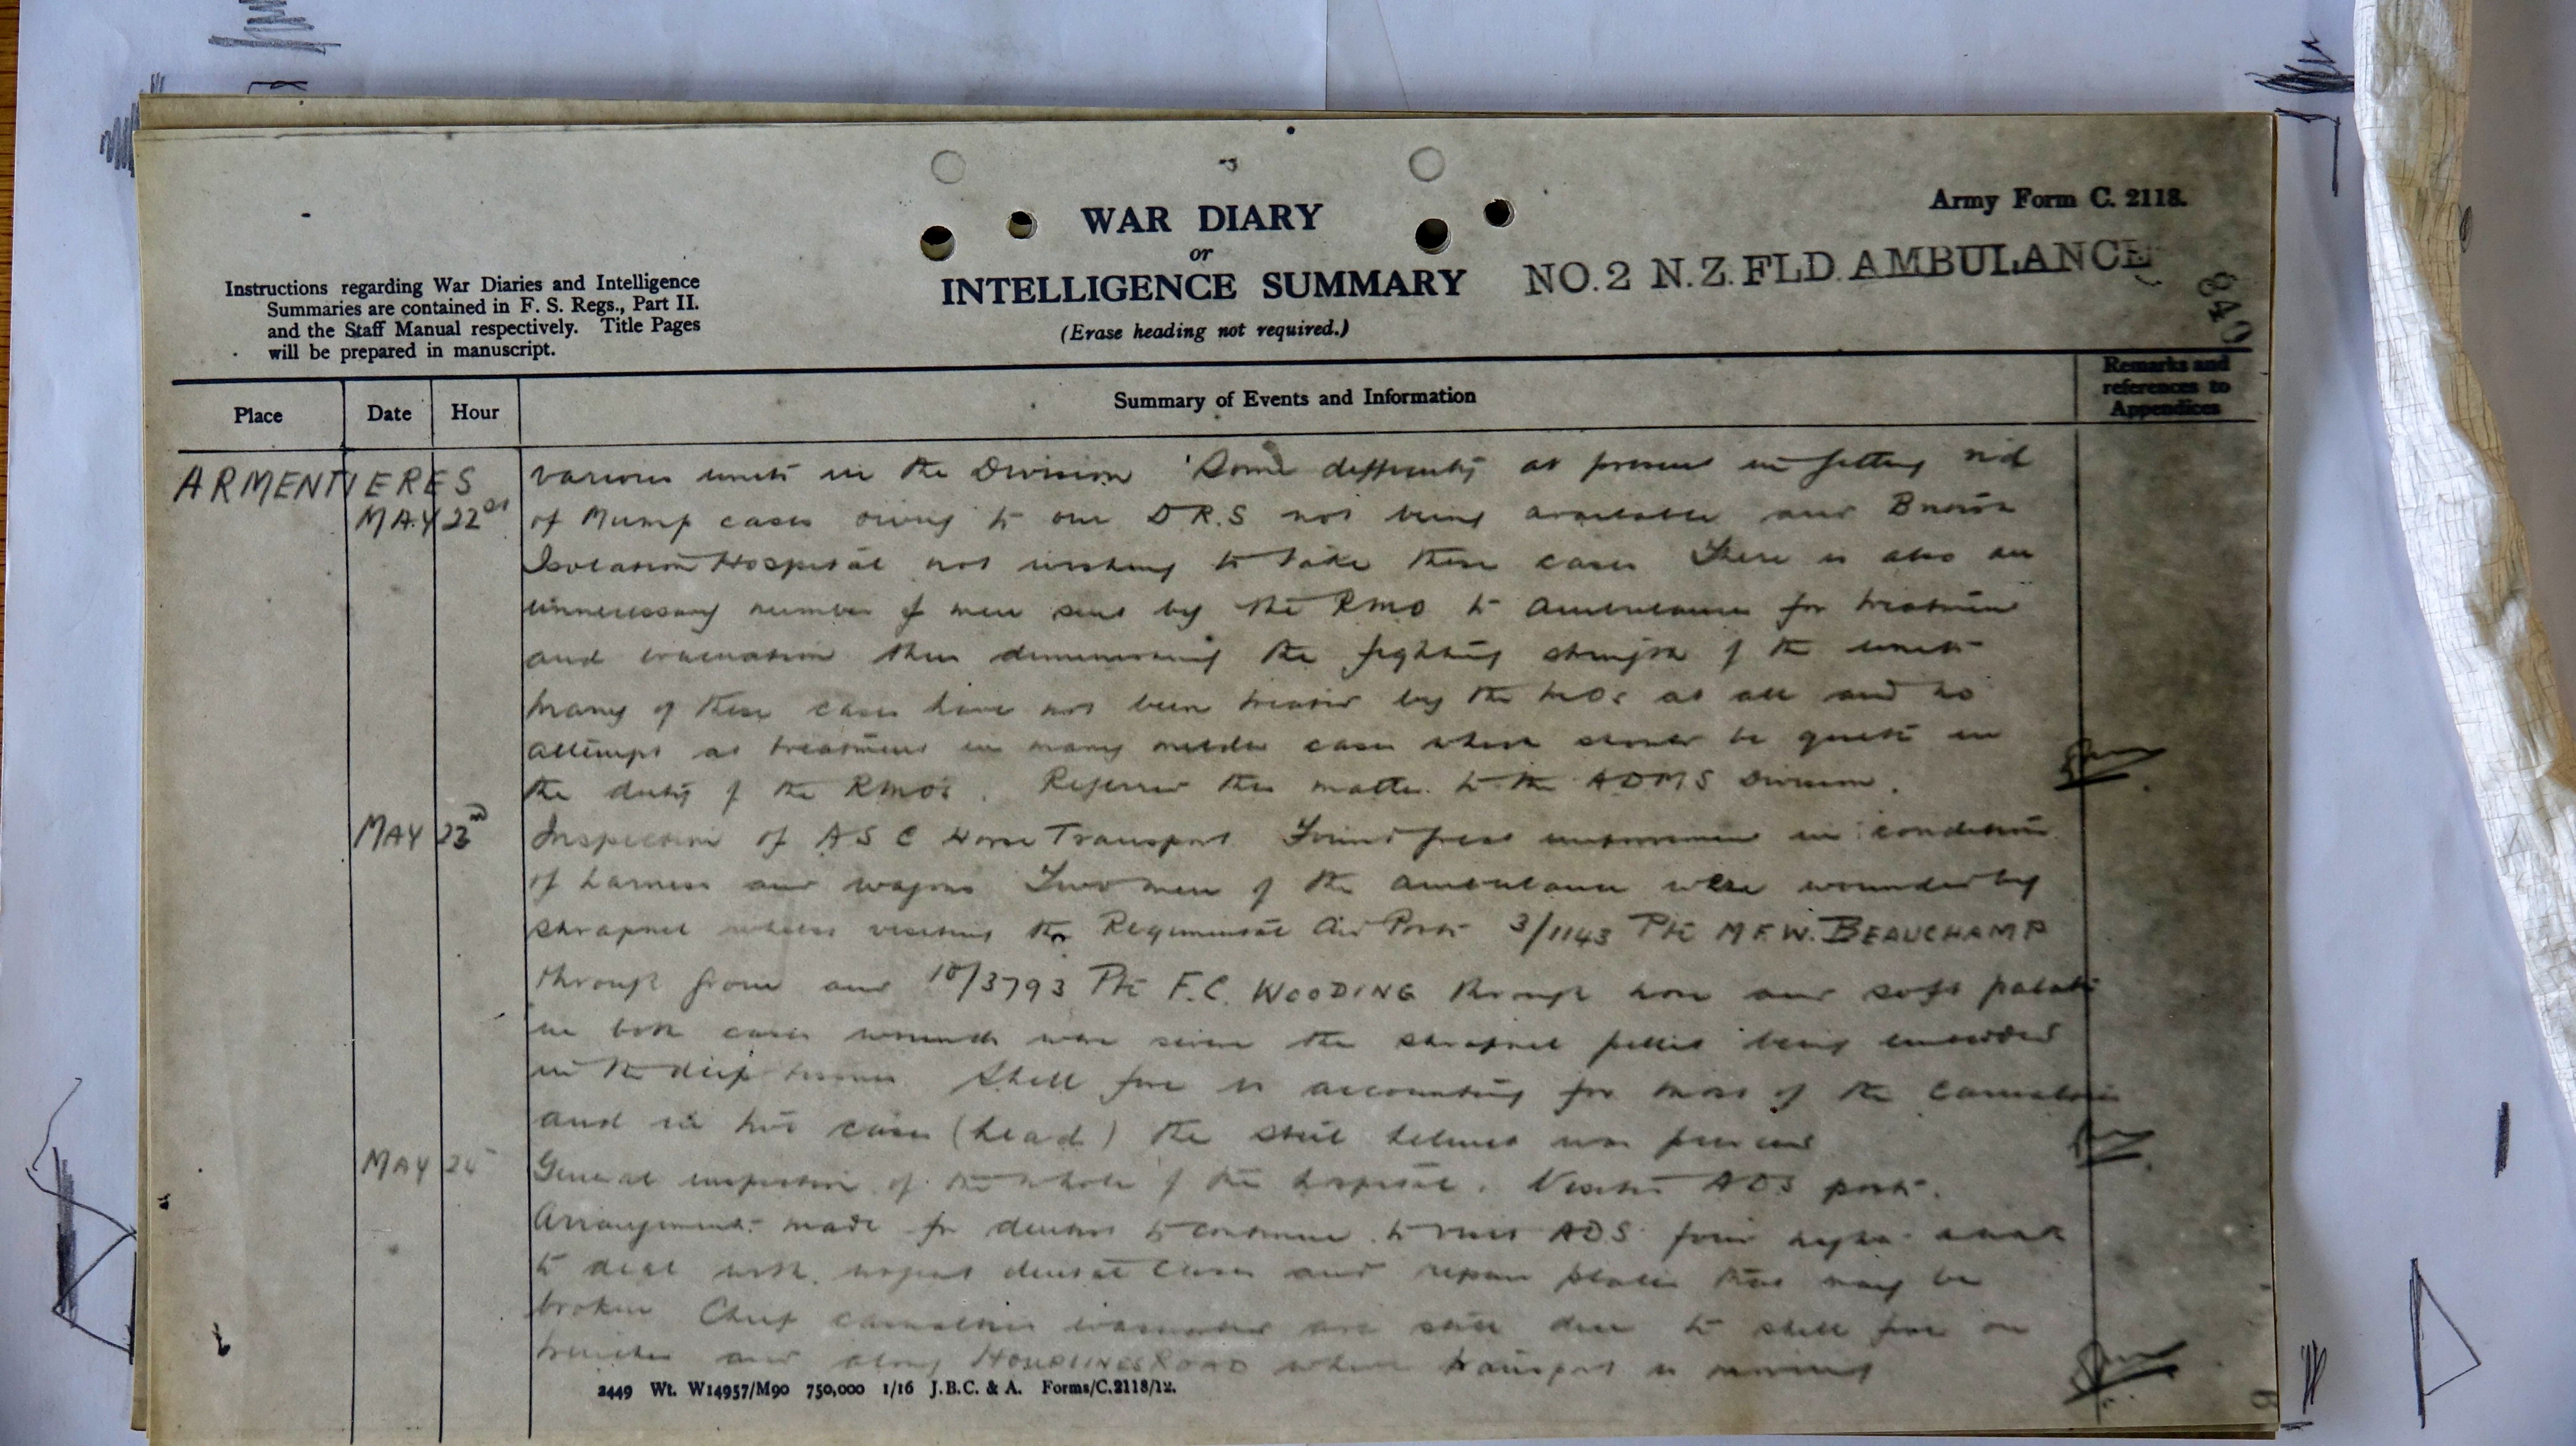 Army Form C. 2118.
WAR DIARY
or
INTELLIGENCE SUMMARY
(Erase heading not required.)
NO. 2 N.Z. FLD. AMBULANCE
840
Instructions regarding War Diaries and Intelligence
Summaries are contained in F. S. Regs., Part II.
and the Staff Manual respectively. Title Pages
will be prepared in manuscript.
Place
Date
Hour
Summary of Events and Information
Remarks and
references to
Appendices
ARMENTIERES
various units in the Division Some difficulty at present in getting rid
MAY 22
of Mump cases owing to our D.R.S not being available and British
Isolation Hospital not wishing to take these cases There is also an
unnecessary number of men sent by the RMO to ambulance for treatment
and evacuation thus diminishing the fighting strength of the units
Many of these cases have not been treated by the MOs at all and no
attempt at treatment in many milder cases which should be quite in
the duty of the RMOs. Referred this matter to the ADMS Division.
MAY 23rd
Inspection of A S C Horse Transport Found great improvement in condition
of harness and wagons Two men of the ambulance were wounded by
shrapnel whilst visiting the Regimental Aid Posts 3/1143 Pte M F.W. BEAUCHAMP
through groin and 10/3793 Pte F.C. WOODING through nose and soft palate
in both cases wounds were severe the shrapnel pellet being embedded
in the deep tissues Shell fire is accounting for most of the casualties
and in two cases (head) the steel helmet was pierced
MAY 24
General inspection of the whole of the hospital. Visited ADS post.
Arrangements made for dentist to continue to visit ADS four nights a week
to deal with urgent dental cases and repair plates that may be
broken Chief casualties evacuated are still due to shell fire on
trenches and along HOUPLINES ROAD where transport is moving
2449 Wt. W14957/M90 750,000 1/16 J.B.C. & A. Forms/C.2118/12.